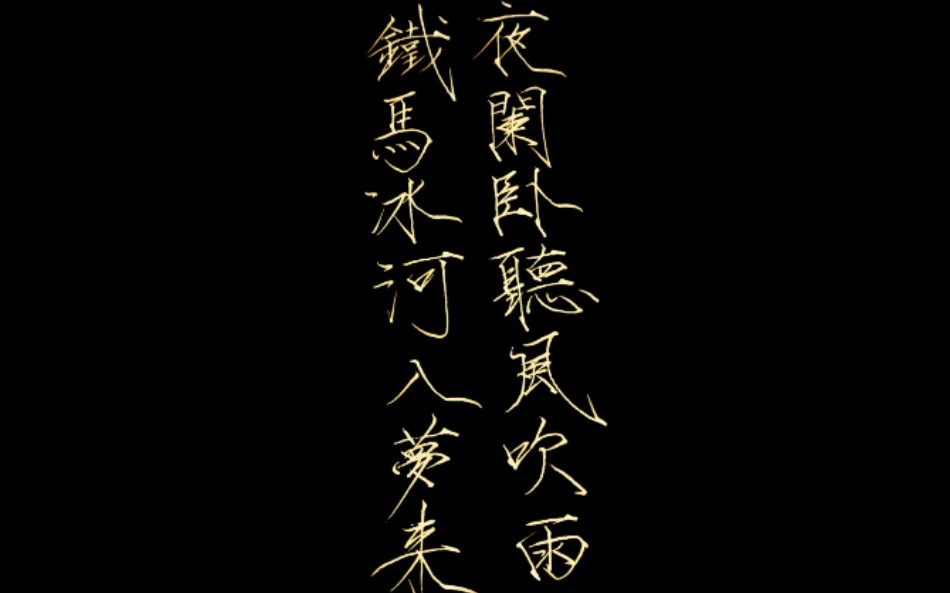 夜闌卧聽風吹雨
鐵馬冰河入夢来